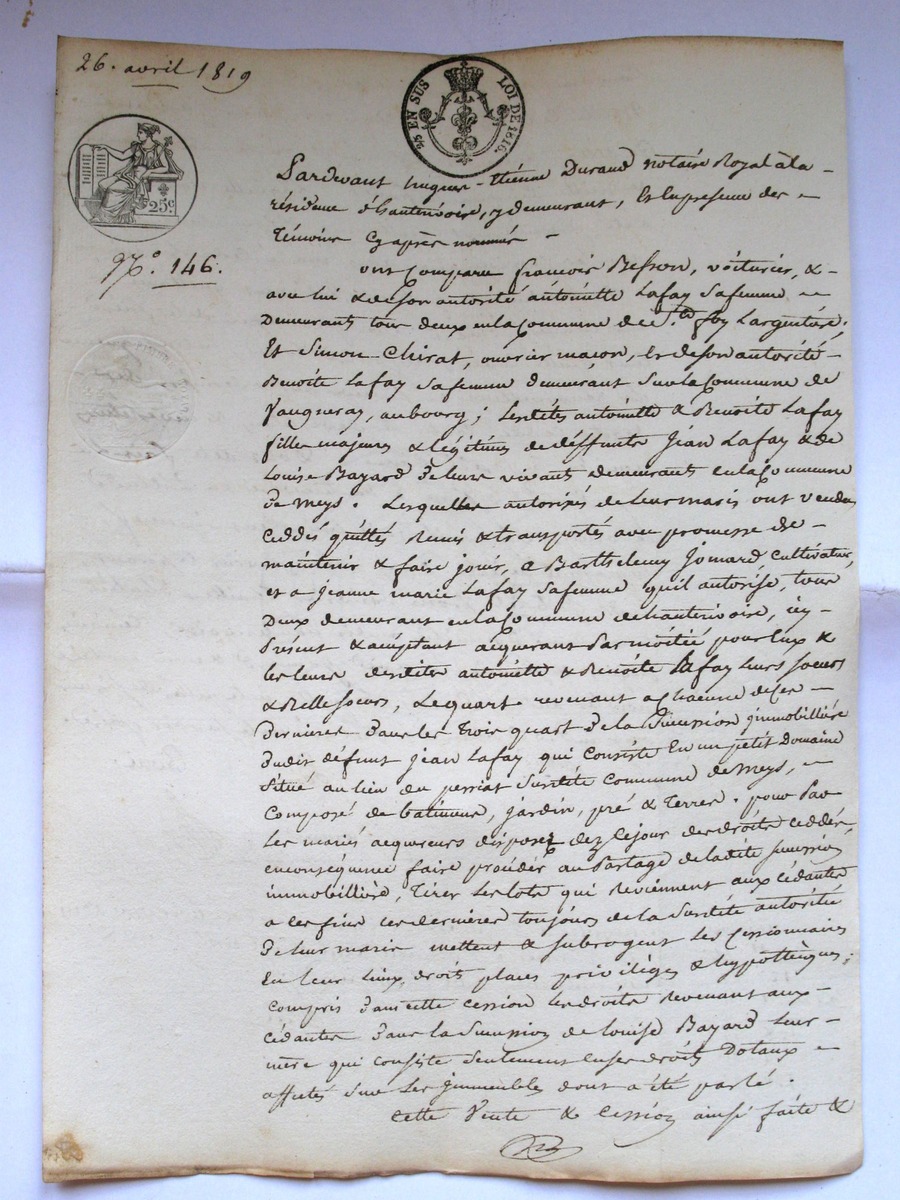 26. avril 1819
25 EN SUS LOI DE 1816.
25c.
No. 146.
Pardevant hugues-Etienne Durand notaire Royal à la
résidence d'hauterivoire, y demeurant, Et en presence des
Témoins Cy après nommés
ont Comparu françois Besson, voiturier, &
avec lui & de son autorité antoinette Lafay sa femme
Demeurants tous deux en la Commune de Ste. foy Largentiere;
Et Simon Chirat, ouvrier maçon, & de son autorité
Benoite Lafay sa femme demeurant sur la Commune de
Vaugneray, au bourg; Lesdites antoinette & Benoite Lafay
filles majeures & légitimes de deffunts Jean Lafay & de
Louise Bayard de leurs vivants demeurants en la Commune
de Meys. Lesquelles autorisés de leurs maris ont vendu
ceddés quittés Remis & transportés avec promesse de
maintenir & faire jouir, a Barthelemy Jomard, cultivateur,
et a jeanne marie Lafay sa femme qu'il autorise, tous
Deux demeurant en la Commune d'hauterivoire, icy
Présent & acceptant acquerans Par moitié pour Eux &
les leurs desdites antoinette & Benoite Lafay leurs soeurs
& Belle soeurs, Le quart revenant a Chacune de ces
Dernieres dans les trois quart de la Succession immobillière
dudit défunt jean Lafay qui Consiste En un petit Domaine
Situé au lieu du perriat Susdite Commune de Meys,
Composé de batiments, jardin, pré & Terres. pour Par
Les mariés acquereurs disposer dez Cejour des droits ceddés,
en conséquence faire procéder au Partage de ladite succession
immobillière, Tirer Les lots qui Reviennent aux Cédantes
a ces fins ces dernières toujours de la Susdite autorité
de leur maris mettent & subrogent Les Cessionnaires
En leur lieux, droits places privilèges & hypothèques;
Compris dans cette cession les droits Revenant aux
cédantes dans la Succession de Louise Bayard Leur
mère qui consiste seulement en ses droits Dotaux
affectés sur Les immeubles dont a été parlé.
Cette Vente & Cession ainsi faite &